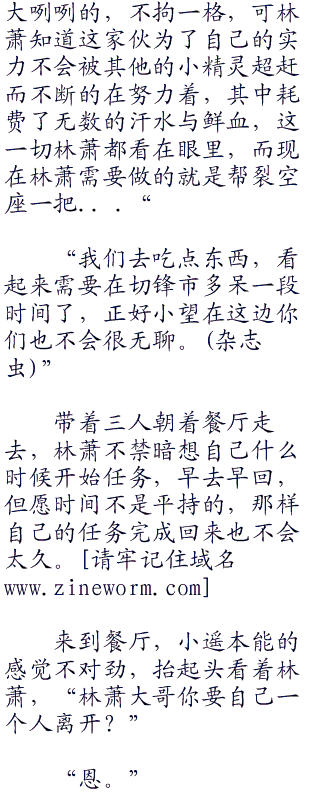 大咧咧的，不拘一格，可林
萧知道这家伙为了自己的实
力不会被其他的小精灵超赶
而不断的在努力着，其中耗
费了无数的汗水与鲜血，这
一切林萧都看在眼里，而现
在林萧需要做的就是帮裂空
座一把...“
“我们去吃点东西，看
起来需要在切锋市多呆一段
时间了，正好小望在这边你
们也不会很无聊。(杂志
虫)”
带着三人朝着餐厅走
去，林萧不禁暗想自己什么
时候开始任务，早去早回，
但愿时间不是平持的，那样
自己的任务完成回来也不会
太久。[请牢记住域名
www.zineworm.com]
来到餐厅，小遥本能的
感觉不对劲，抬起头看着林
萧，“林萧大哥你要自己一
个人离开？”
“恩。”